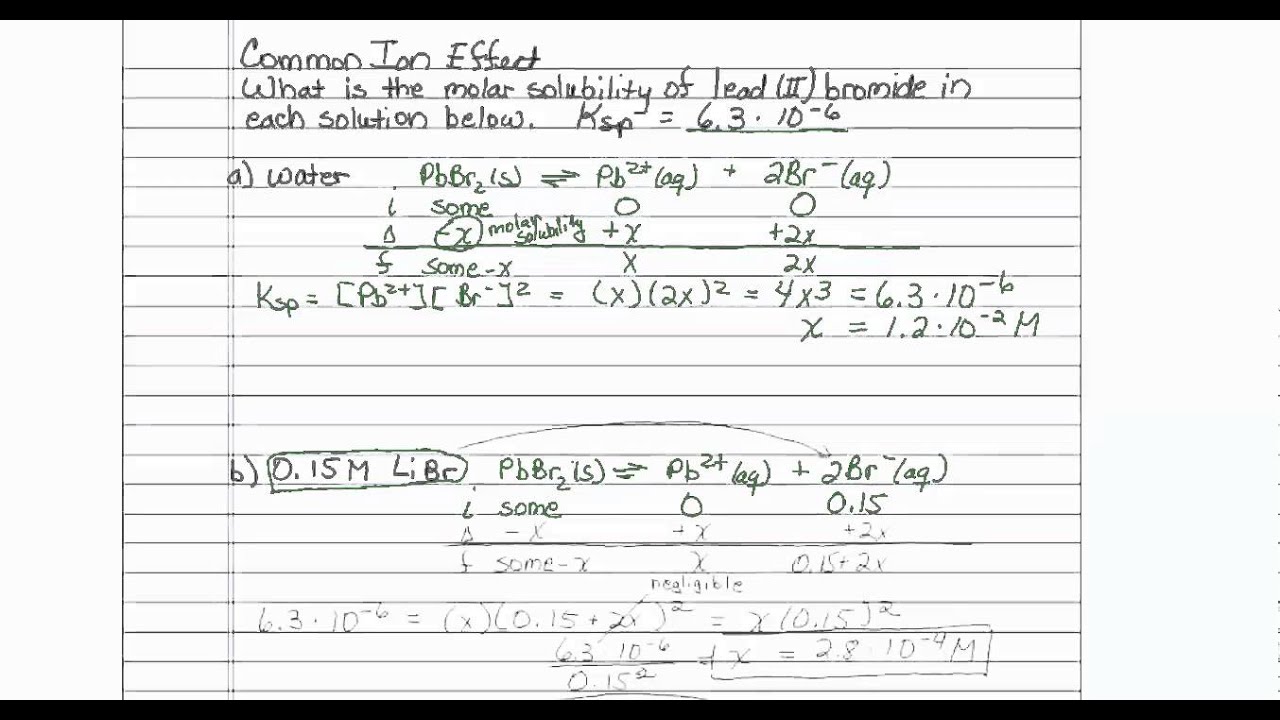 Common Ion Effect
What is the molar solubility of lead (II) bromide in
each solution below. Ksp = 6.3 · 10⁻⁶
a) water PbBr₂(s) ⇌ Pb²⁺(aq) + 2Br⁻(aq)
i some 0 0
Δ -x molar solubility +x +2x
f some-x x 2x
Ksp = [Pb²⁺][Br⁻]² = (x)(2x)² = 4x³ = 6.3·10⁻⁶
x = 1.2·10⁻² M
b) 0.15M LiBr PbBr₂(s) ⇌ Pb²⁺(aq) + 2Br⁻(aq)
i some 0 0.15
Δ -x +x +2x
f some-x x 0.15+2x
negligible
6.3·10⁻⁶ = (x)(0.15+2x)² = x(0.15)²
6.3 10⁻⁶ x = 2.8·10⁻⁴ M
0.15²